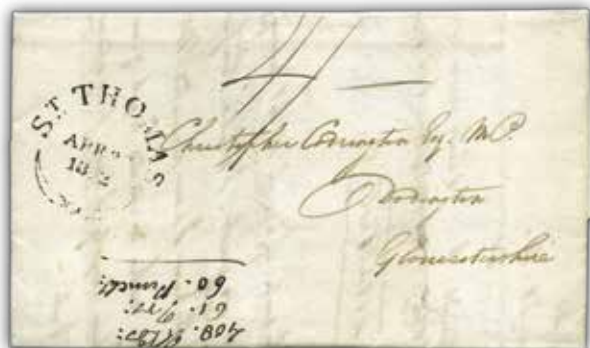 4/-
ST THOMAS
APR
18
Christopher Codrington Esq. M.P.
Dodington
Gloucestershire
408.
61.
60.